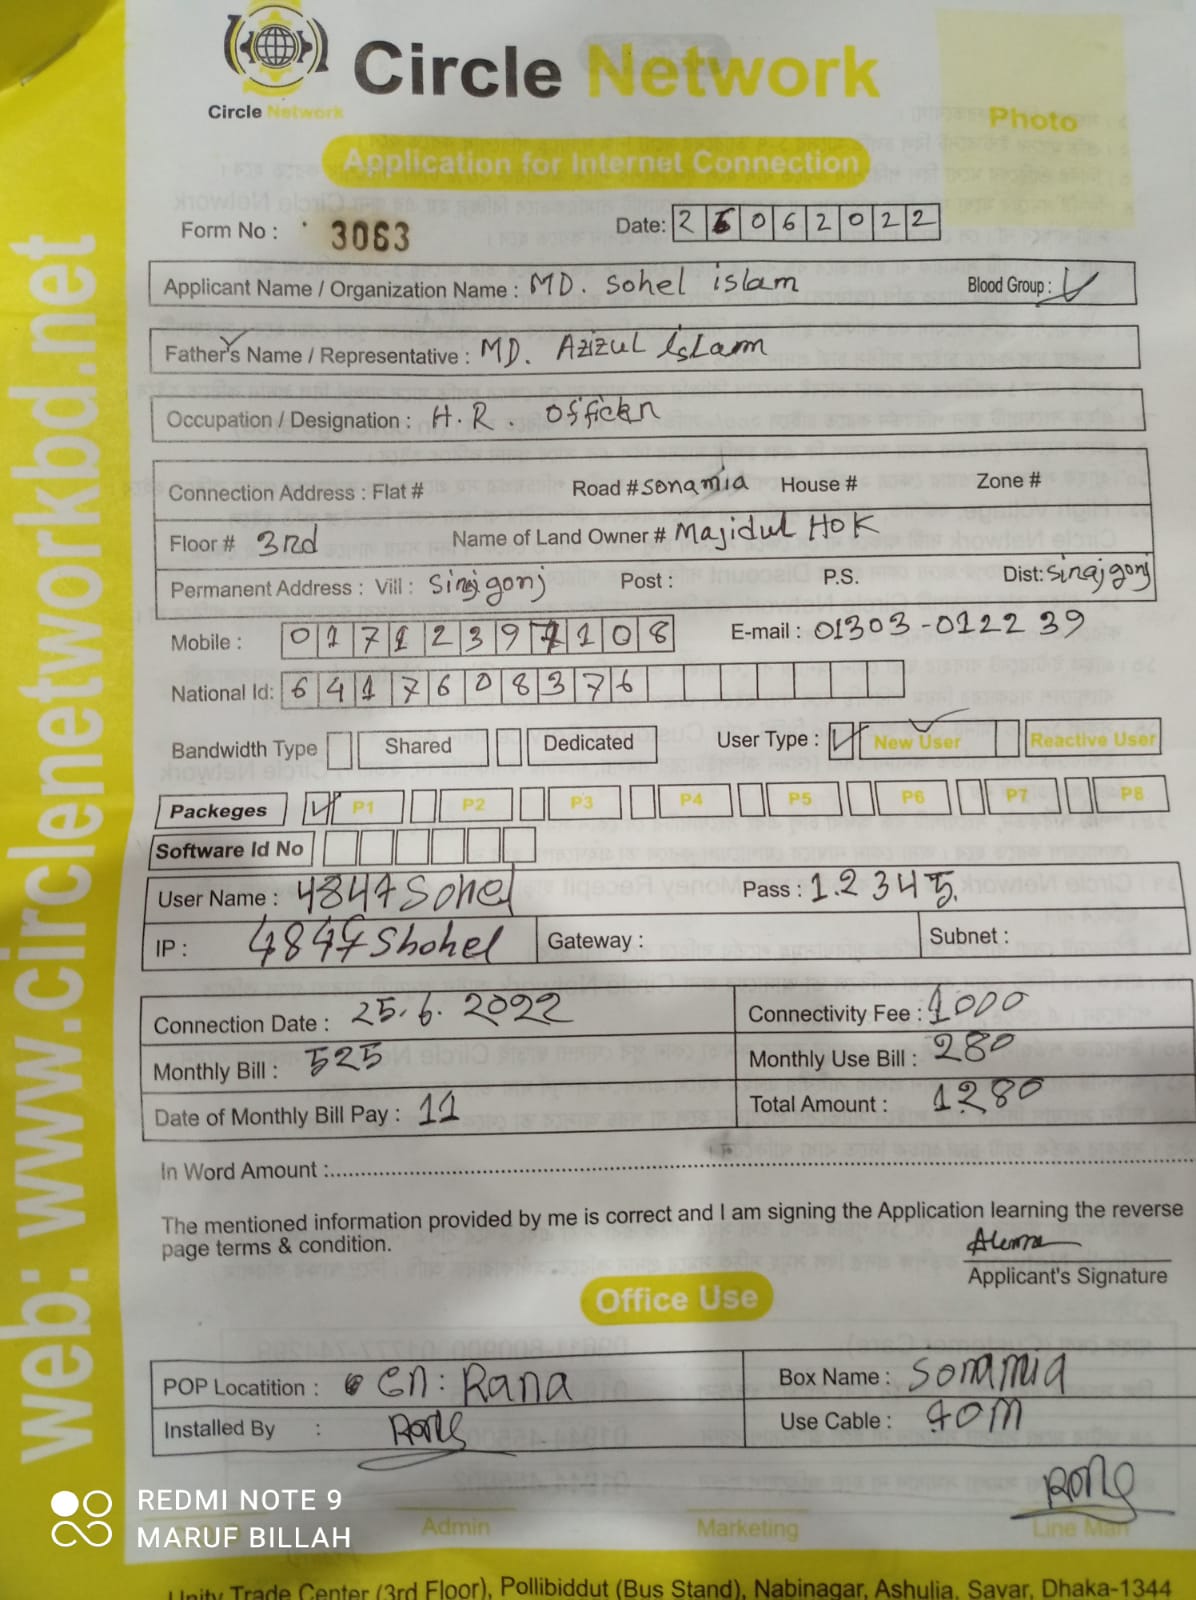 Circle Network
Circle Network
Photo
Application for Internet Connection
Form No : 3063
Date: 2 5 0 6 2 0 2 2
Applicant Name / Organization Name : MD. Sohel islam
Blood Group :
Father's Name / Representative : MD. Azizul islam
Occupation / Designation : H.R. officer
Connection Address : Flat # Road # sonamia House # Zone #
Floor # 3rd Name of Land Owner # Majidul HOK
Permanent Address : Vill : Sirajgonj Post : P.S. Dist: Sirajgonj
Mobile : 0 1 7 1 2 3 9 7 1 0 8 E-mail : 01303-0122 39
National Id: 6 4 1 7 6 0 8 3 7 6
Bandwidth Type Shared Dedicated User Type : New User Reactive User
Packeges P1 P2 P3 P4 P5 P6 P7 P8
Software Id No
User Name : 4847Sohel Pass : 12345
IP : 4847Shohel Gateway : Subnet :
Connection Date : 25.6.2022 Connectivity Fee : 1000
Monthly Bill : 525 Monthly Use Bill : 280
Date of Monthly Bill Pay : 11 Total Amount : 1280
In Word Amount :
The mentioned information provided by me is correct and I am signing the Application learning the reverse
page terms & condition.
Applicant's Signature
Office Use
POP Locatition : en: Rana Box Name : Sonamia
Installed By : Use Cable : 40M
Admin Marketing Line Man
Unity Trade Center (3rd Floor), Pollibiddut (Bus Stand), Nabinagar, Ashulia, Savar, Dhaka-1344
web: www.circlenetworkbd.net
REDMI NOTE 9
MARUF BILLAH